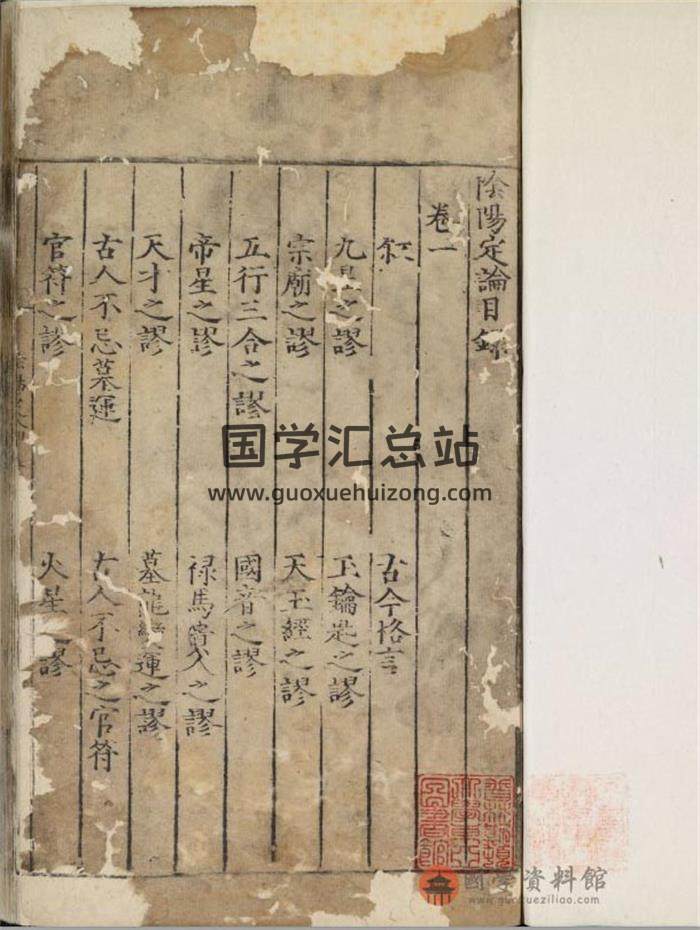 陰陽定論目録
卷一
古今格言
九星之謬 玉鑰匙之謬
宗廟之謬 天玉經之謬
五行三合之謬 國音之謬
帝星之謬 禄馬貴人之謬
天才之謬 墓龍變運之謬
古人不忌墓運 古人不忌之官符
官符之謬 火星之謬
国学汇总站
www.guoxuehuizong.com
國学資料館
www.guoxueziliao.com